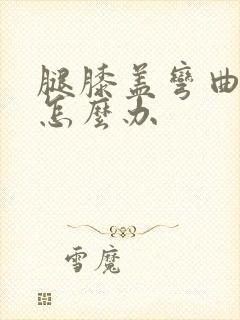 腿膝盖弯曲
怎麼办
雪魔